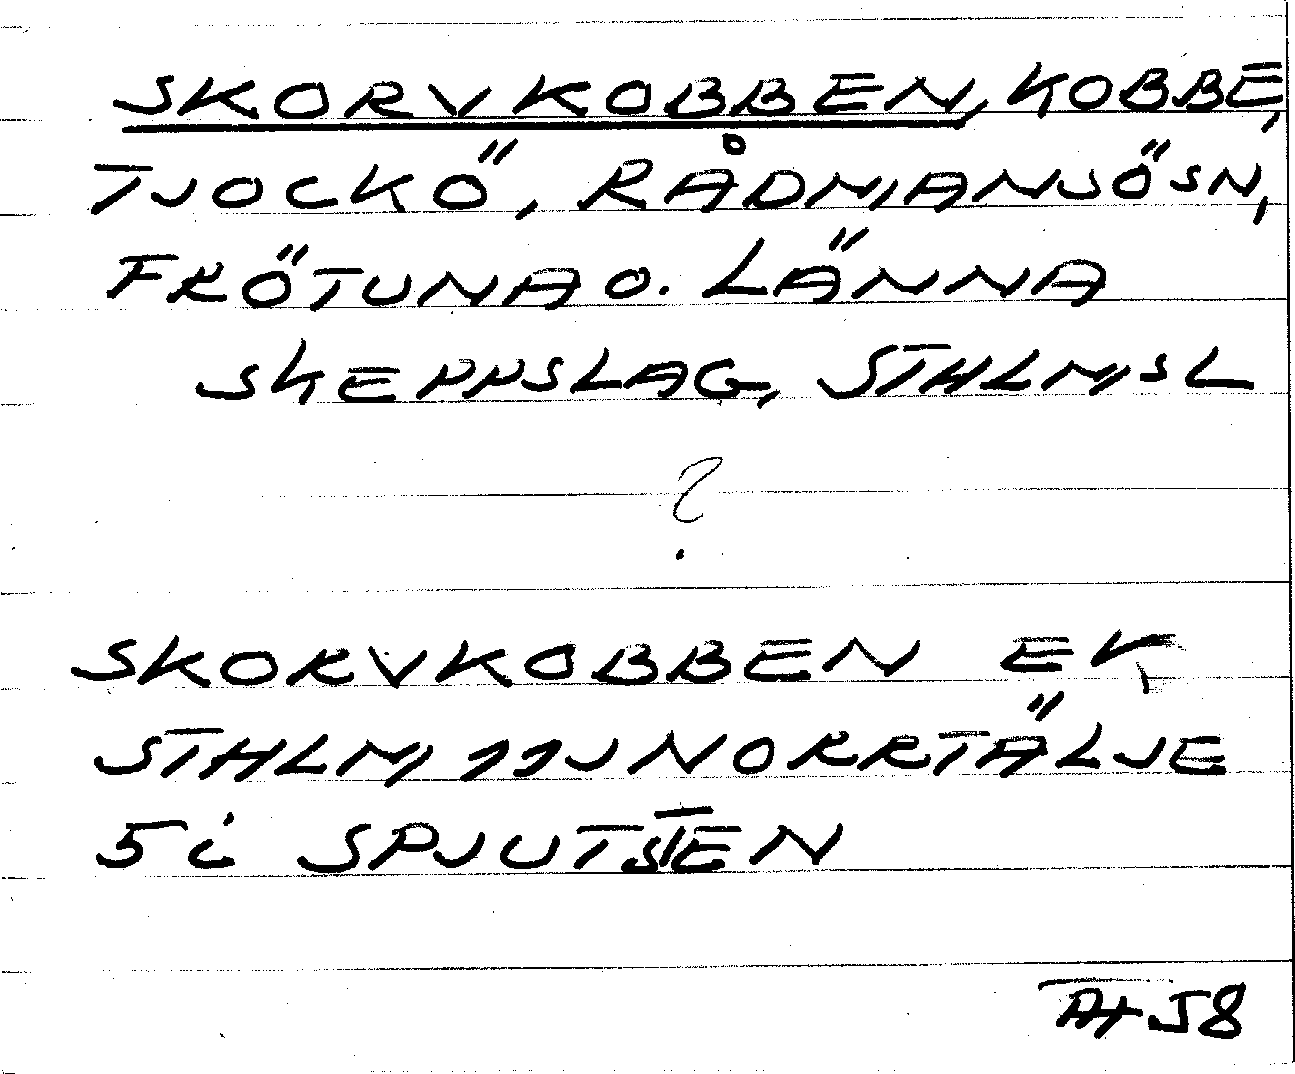 SKORVKOBBEN, KOBBE,
TJOCKÖ, RÅDMANSÖSN,
FRÖTUNA O. LÄNNA
SKEPPSLAG, STHLMSL
?
SKORVKOBBEN EK
STHLM 11J NORRTÄLJE
5i SPJUTSTEN
58